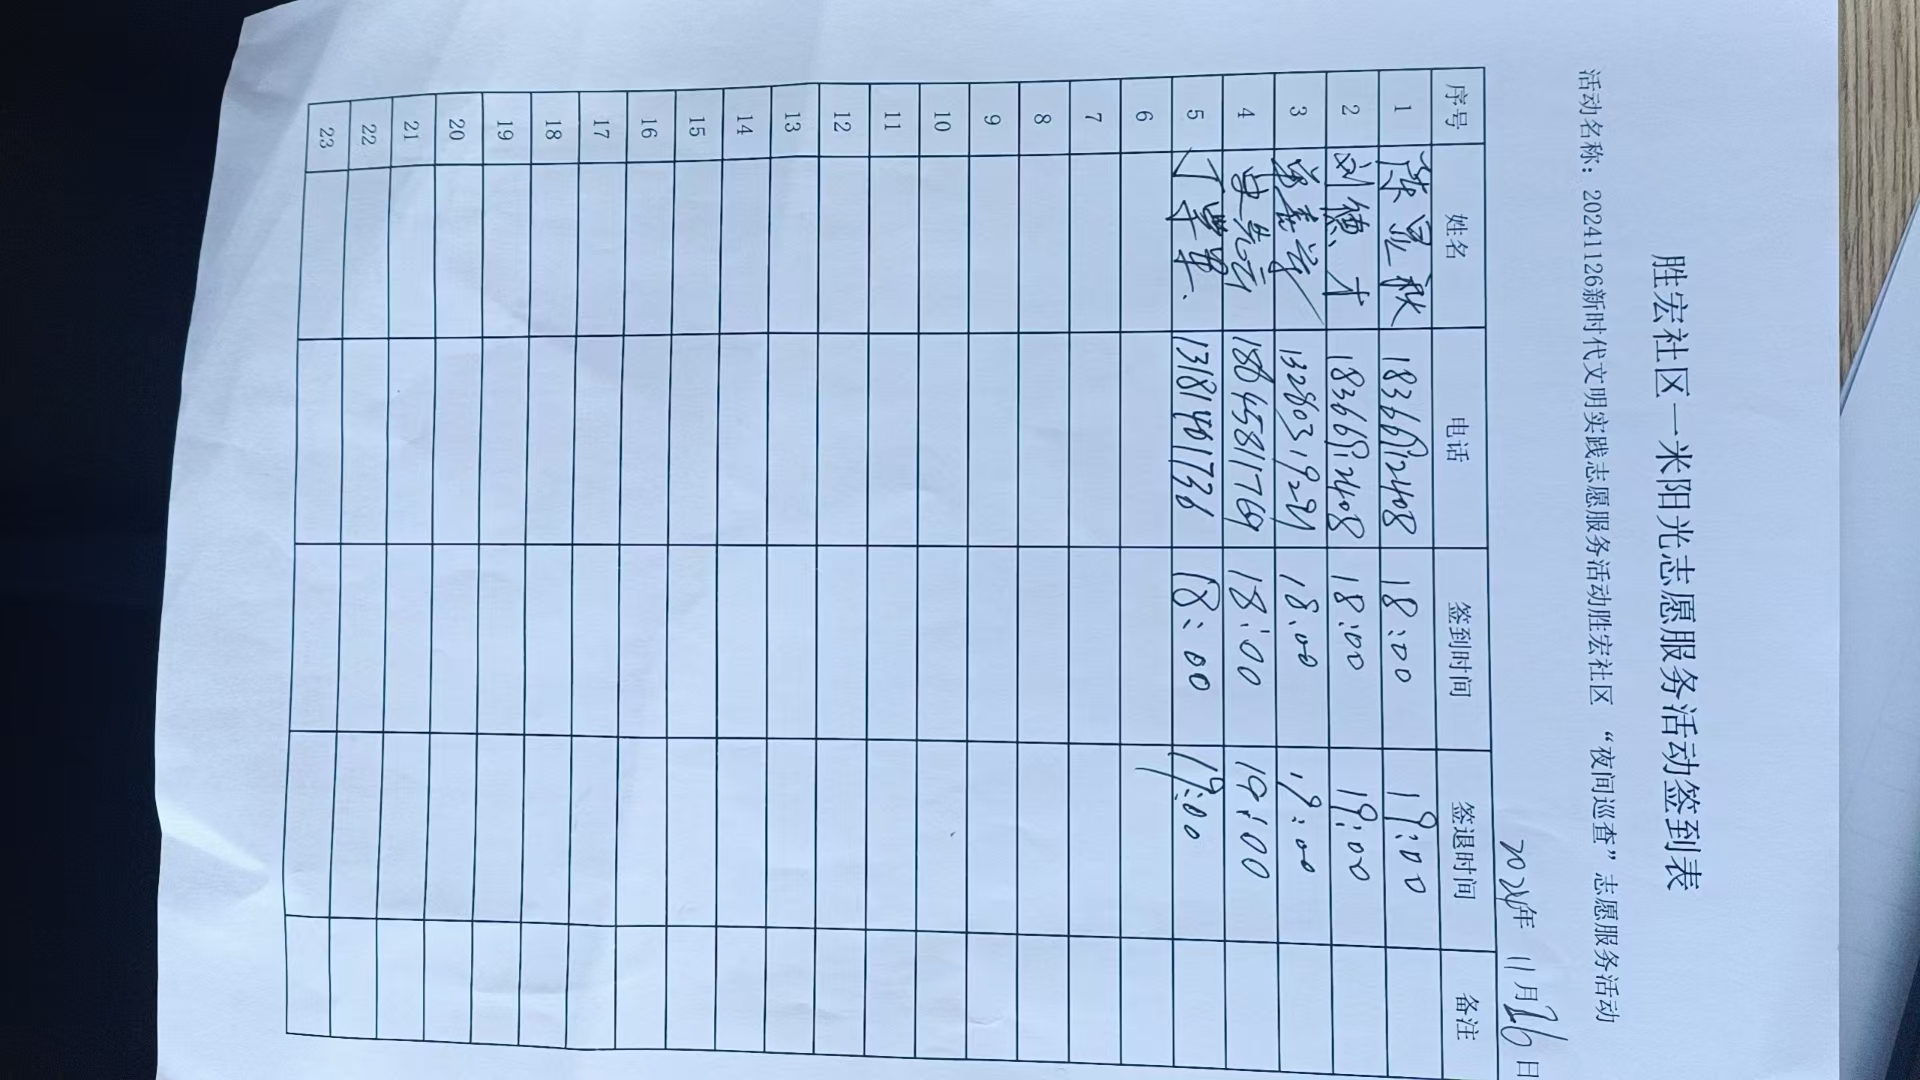 胜宏社区一米阳光志愿服务活动签到表
活动名称：20241126新时代文明实践志愿服务活动胜宏社区 “夜间巡查”志愿服务活动
2024年 11月26日
序号 姓名 电话 签到时间 签退时间 备注
1 陈显秋 18366112408 18:00 19:00
2 刘德才 18366112408 18:00 19:00
3 13280319221 18:00 19:00
4 史先云 1864581769 18:00 19:00
5 丁学军 18:00 19:00
6
7
8
9
10
11
12
13
14
15
16
17
18
19
20
21
22
23